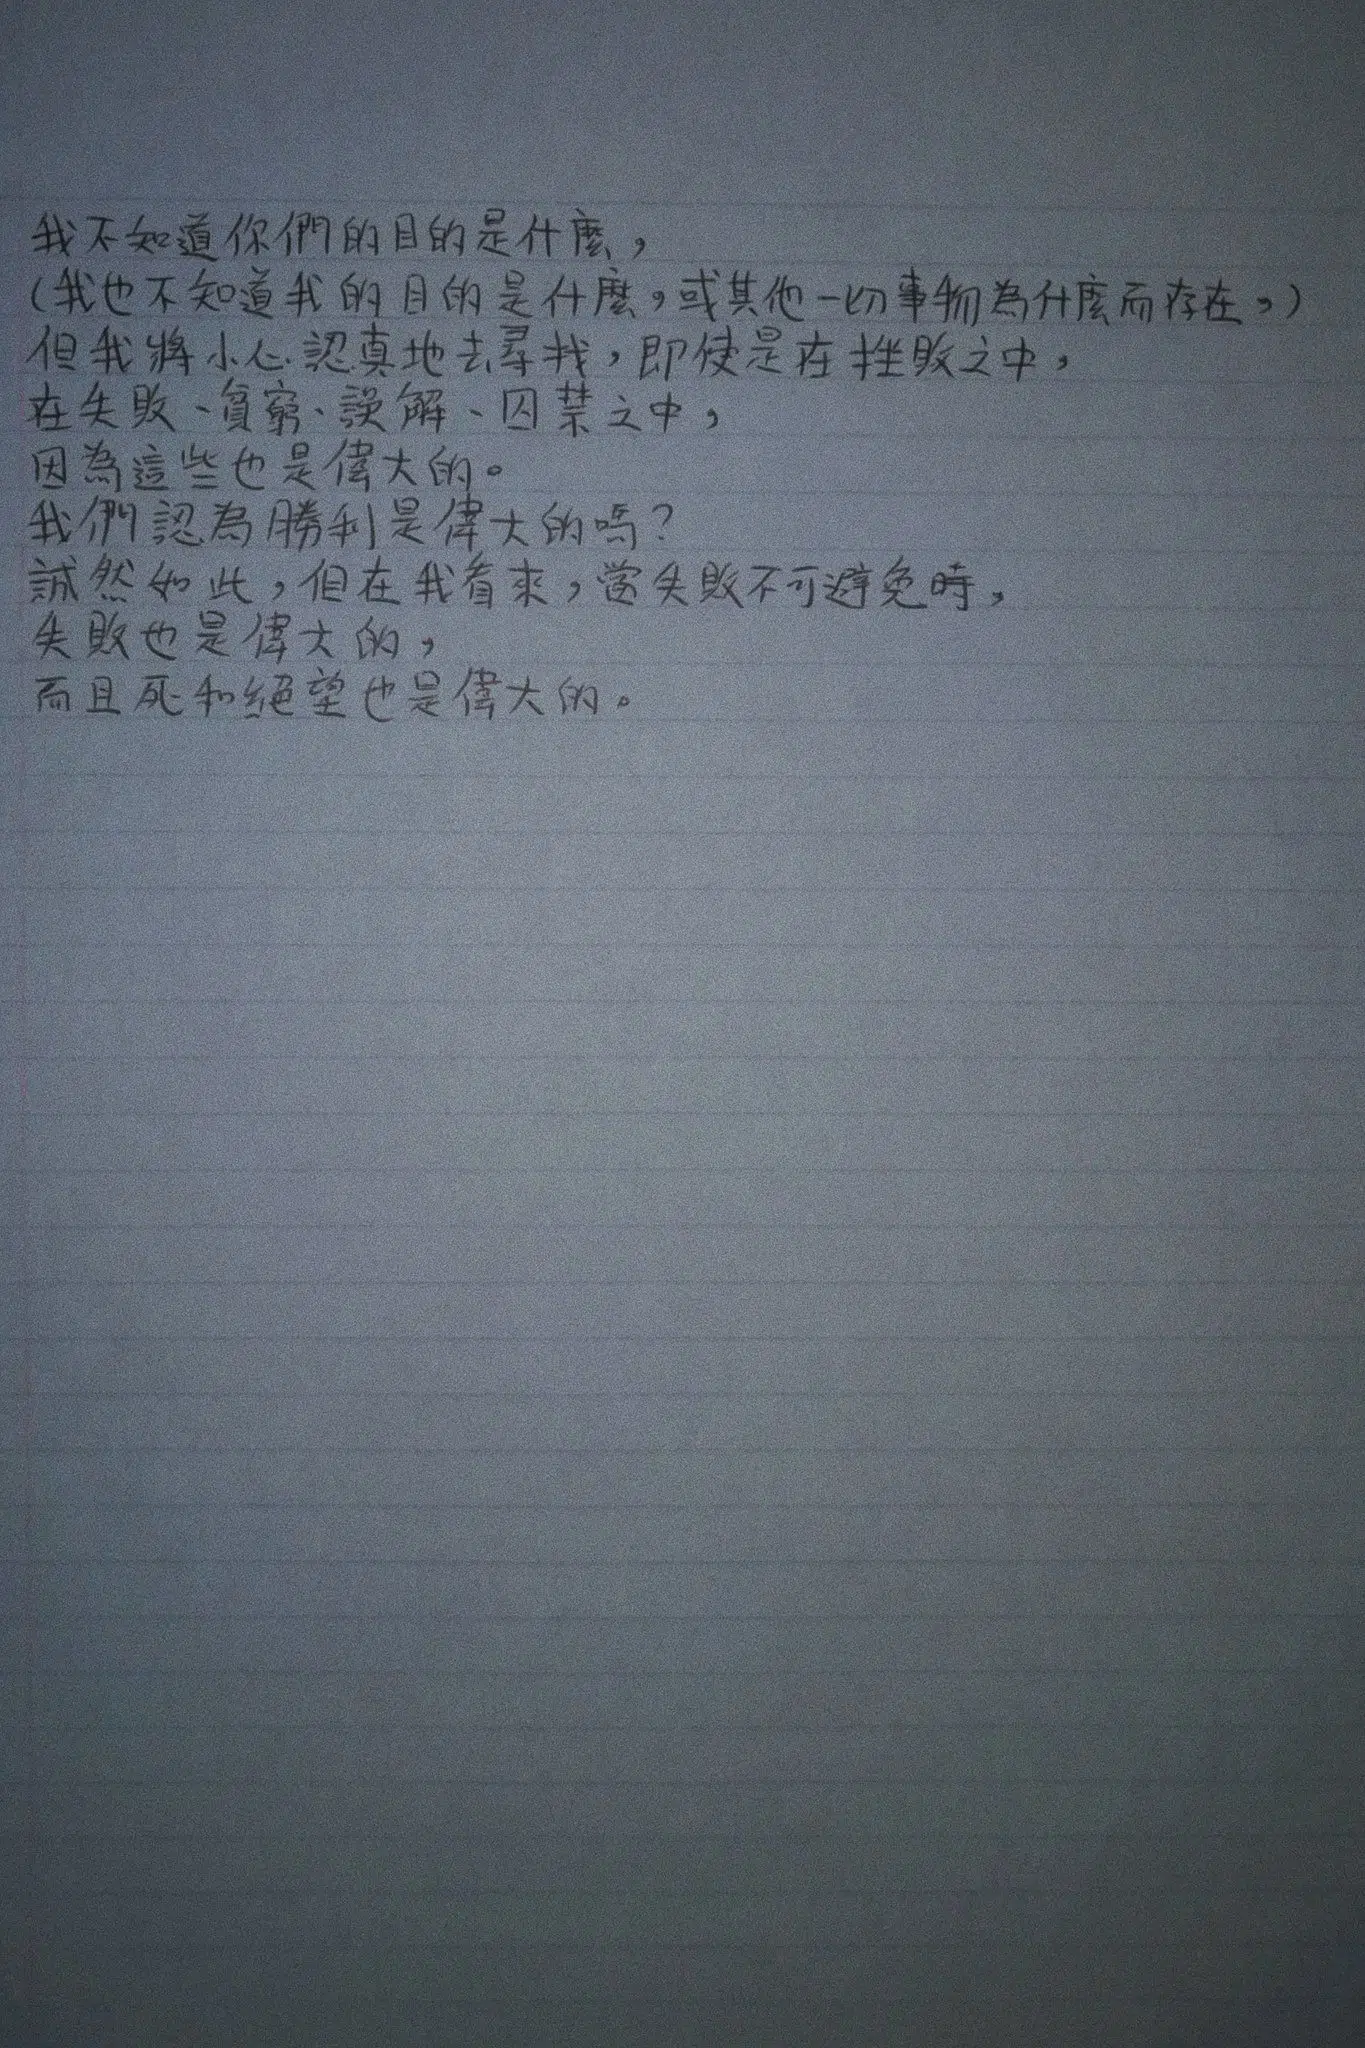 我不知道你們的目的是什麼，
(我也不知道我的目的是什麼，或其他一切事物為什麼而存在，)
但我將小心認真地去尋找，即使是在挫敗之中，
在失敗、貧窮、誤解、囚禁之中，
因為這些也是偉大的。
我們認為勝利是偉大的嗎?
誠然如此，但在我看來，當失敗不可避免時，
失敗也是偉大的，
而且死和絕望也是偉大的。